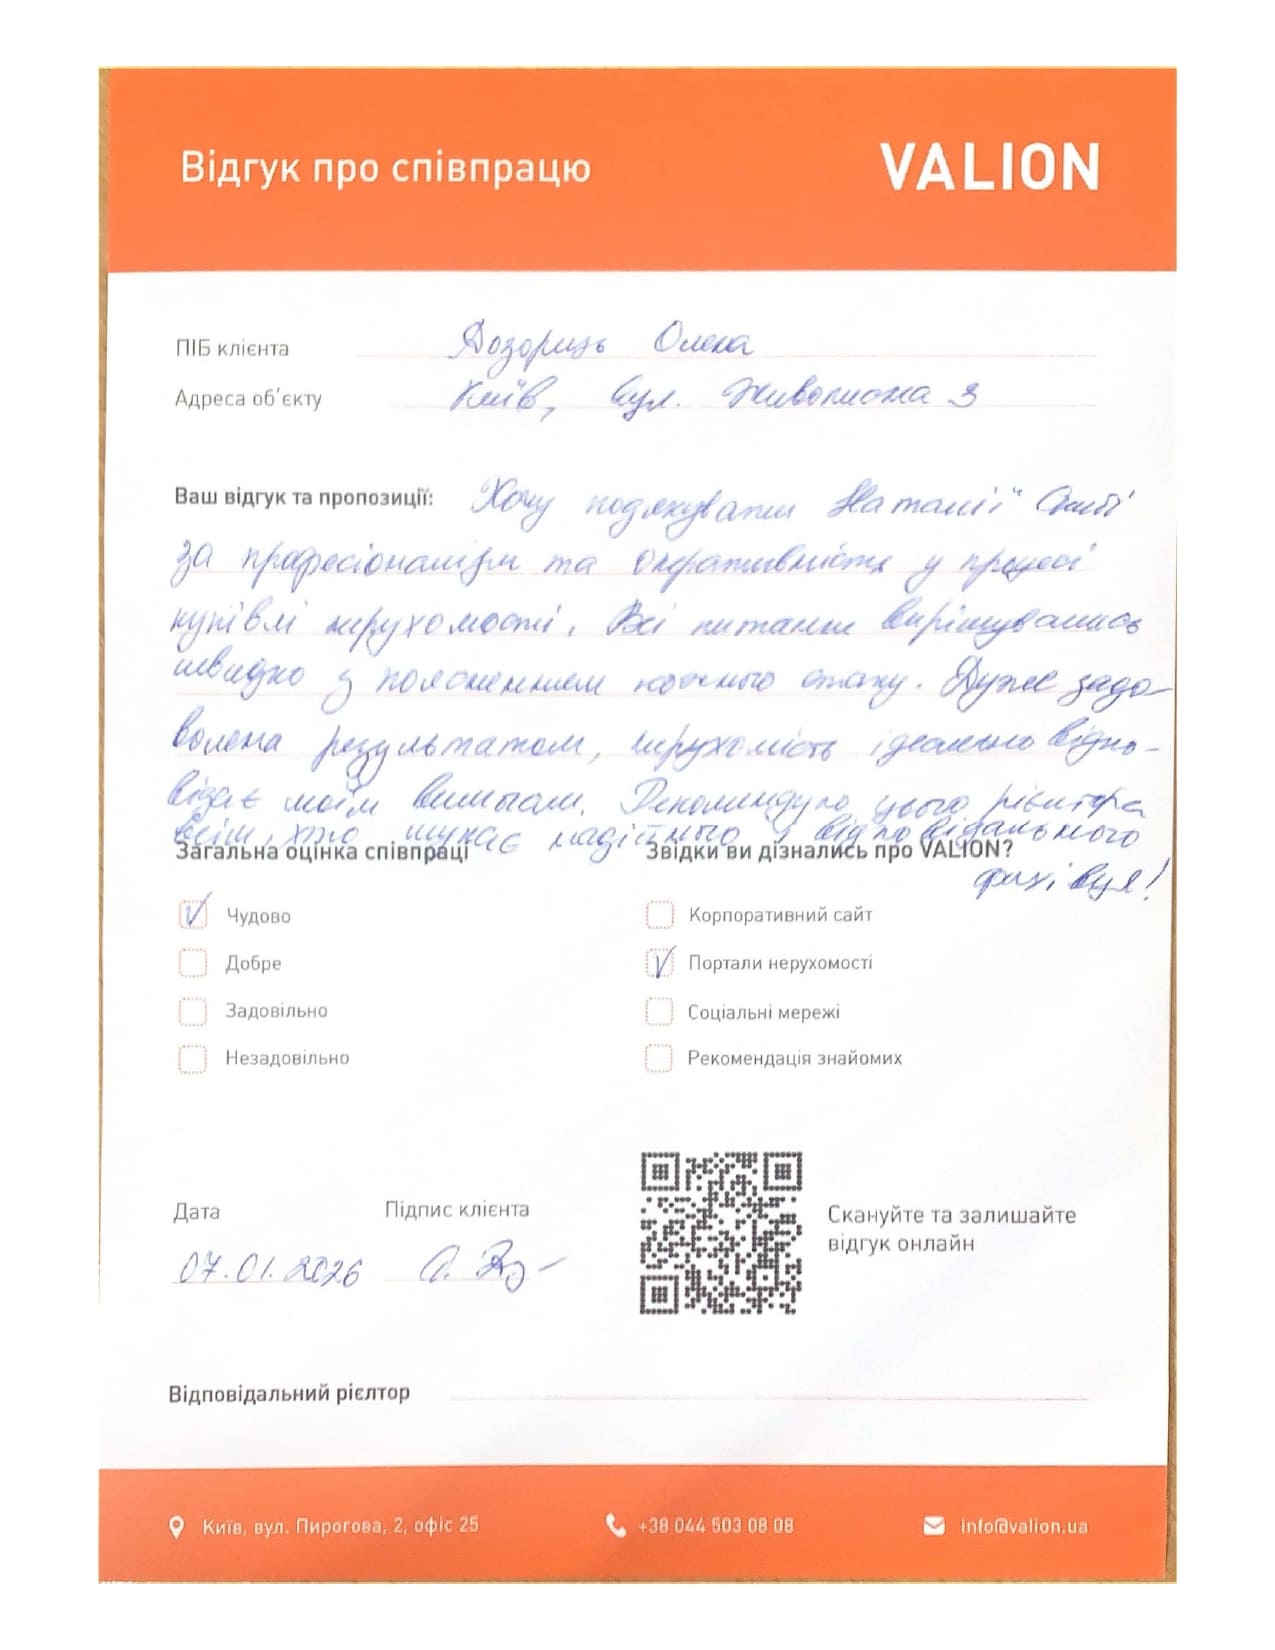 Відгук про співпрацю
VALION
ПІБ клієнта Дозориць Олена
Адреса об'єкту Київ, вул. Живописна 3
Ваш відгук та пропозиції: Хочу подякувати Наталії
за професіоналізм та оперативність у процесі
купівлі нерухомості. Всі питання вирішувались
швидко з поясненням кожного етапу. Дуже задо-
волена результатом, нерухомість ідеально відпо-
відає моїм вимогам. Рекомендую цього ріелтора
всім, хто шукає надійного і відповідального
фахівця!
Загальна оцінка співпраці
Чудово
Добре
Задовільно
Незадовільно
Звідки ви дізнались про VALION?
Корпоративний сайт
Портали нерухомості
Соціальні мережі
Рекомендація знайомих
Дата
07.01.2026
Підпис клієнта
Скануйте та залишайте
відгук онлайн
Відповідальний рієлтор
Київ, вул. Пирогова, 2, офіс 25
+38 044 503 08 08
info@valion.ua